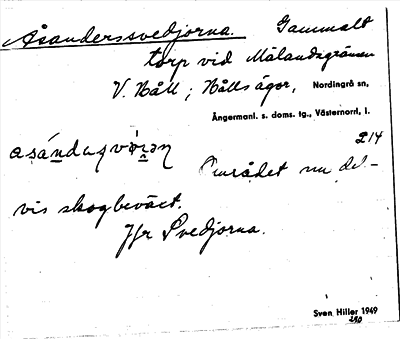 Åsanderssvedjorna. Gammalt
torp vid Målandsgränsen
V. Nåll; Nålls ägor, Nordingrå sn,
Ångermanl. s. doms. tg., Västernorrl. l.
214
Området nu del-
vis skogbeväxt.
Jfr Svedjorna.
Sven Hiller 1949